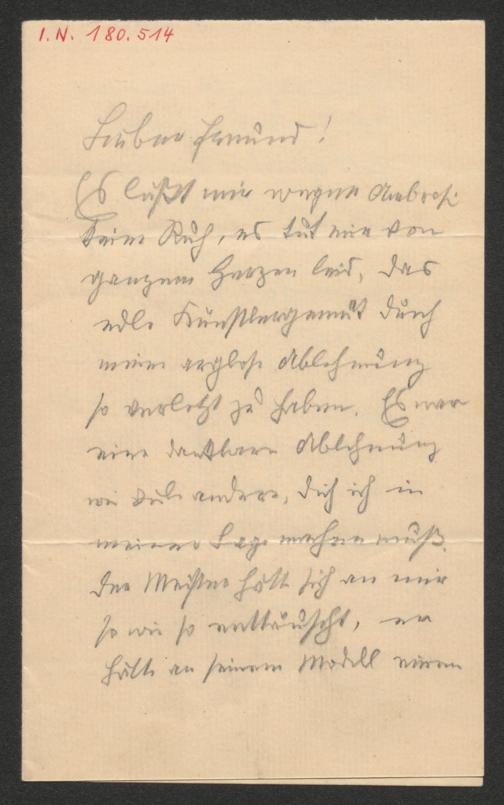 I.N. 180.514
Lieber Freund!
Es läßt mir wegen Ambrosi
keine Ruh, es tut mir von
ganzem Herzen leid, das
edle Künstlergemüt durch
meine arglose Ablehnung
so verletzt zu haben. Es war
eine dankbare Ablehnung
wie viele andere, die ich in
meiner Lage machen muß.
Der Meister hätt sich an mir
so wie so enttäuscht, er
hätte an seinem Modell einen